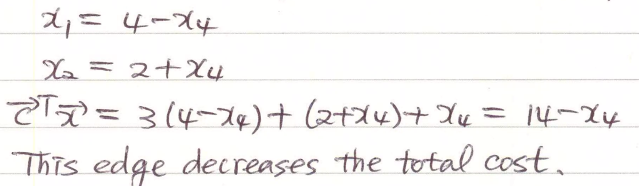 x₁ = 4 - x₄
x₂ = 2 + x₄
c⃗ᵀx⃗ = 3(4-x₄) + (2+x₄) + x₄ = 14 - x₄
This edge decreases the total cost.